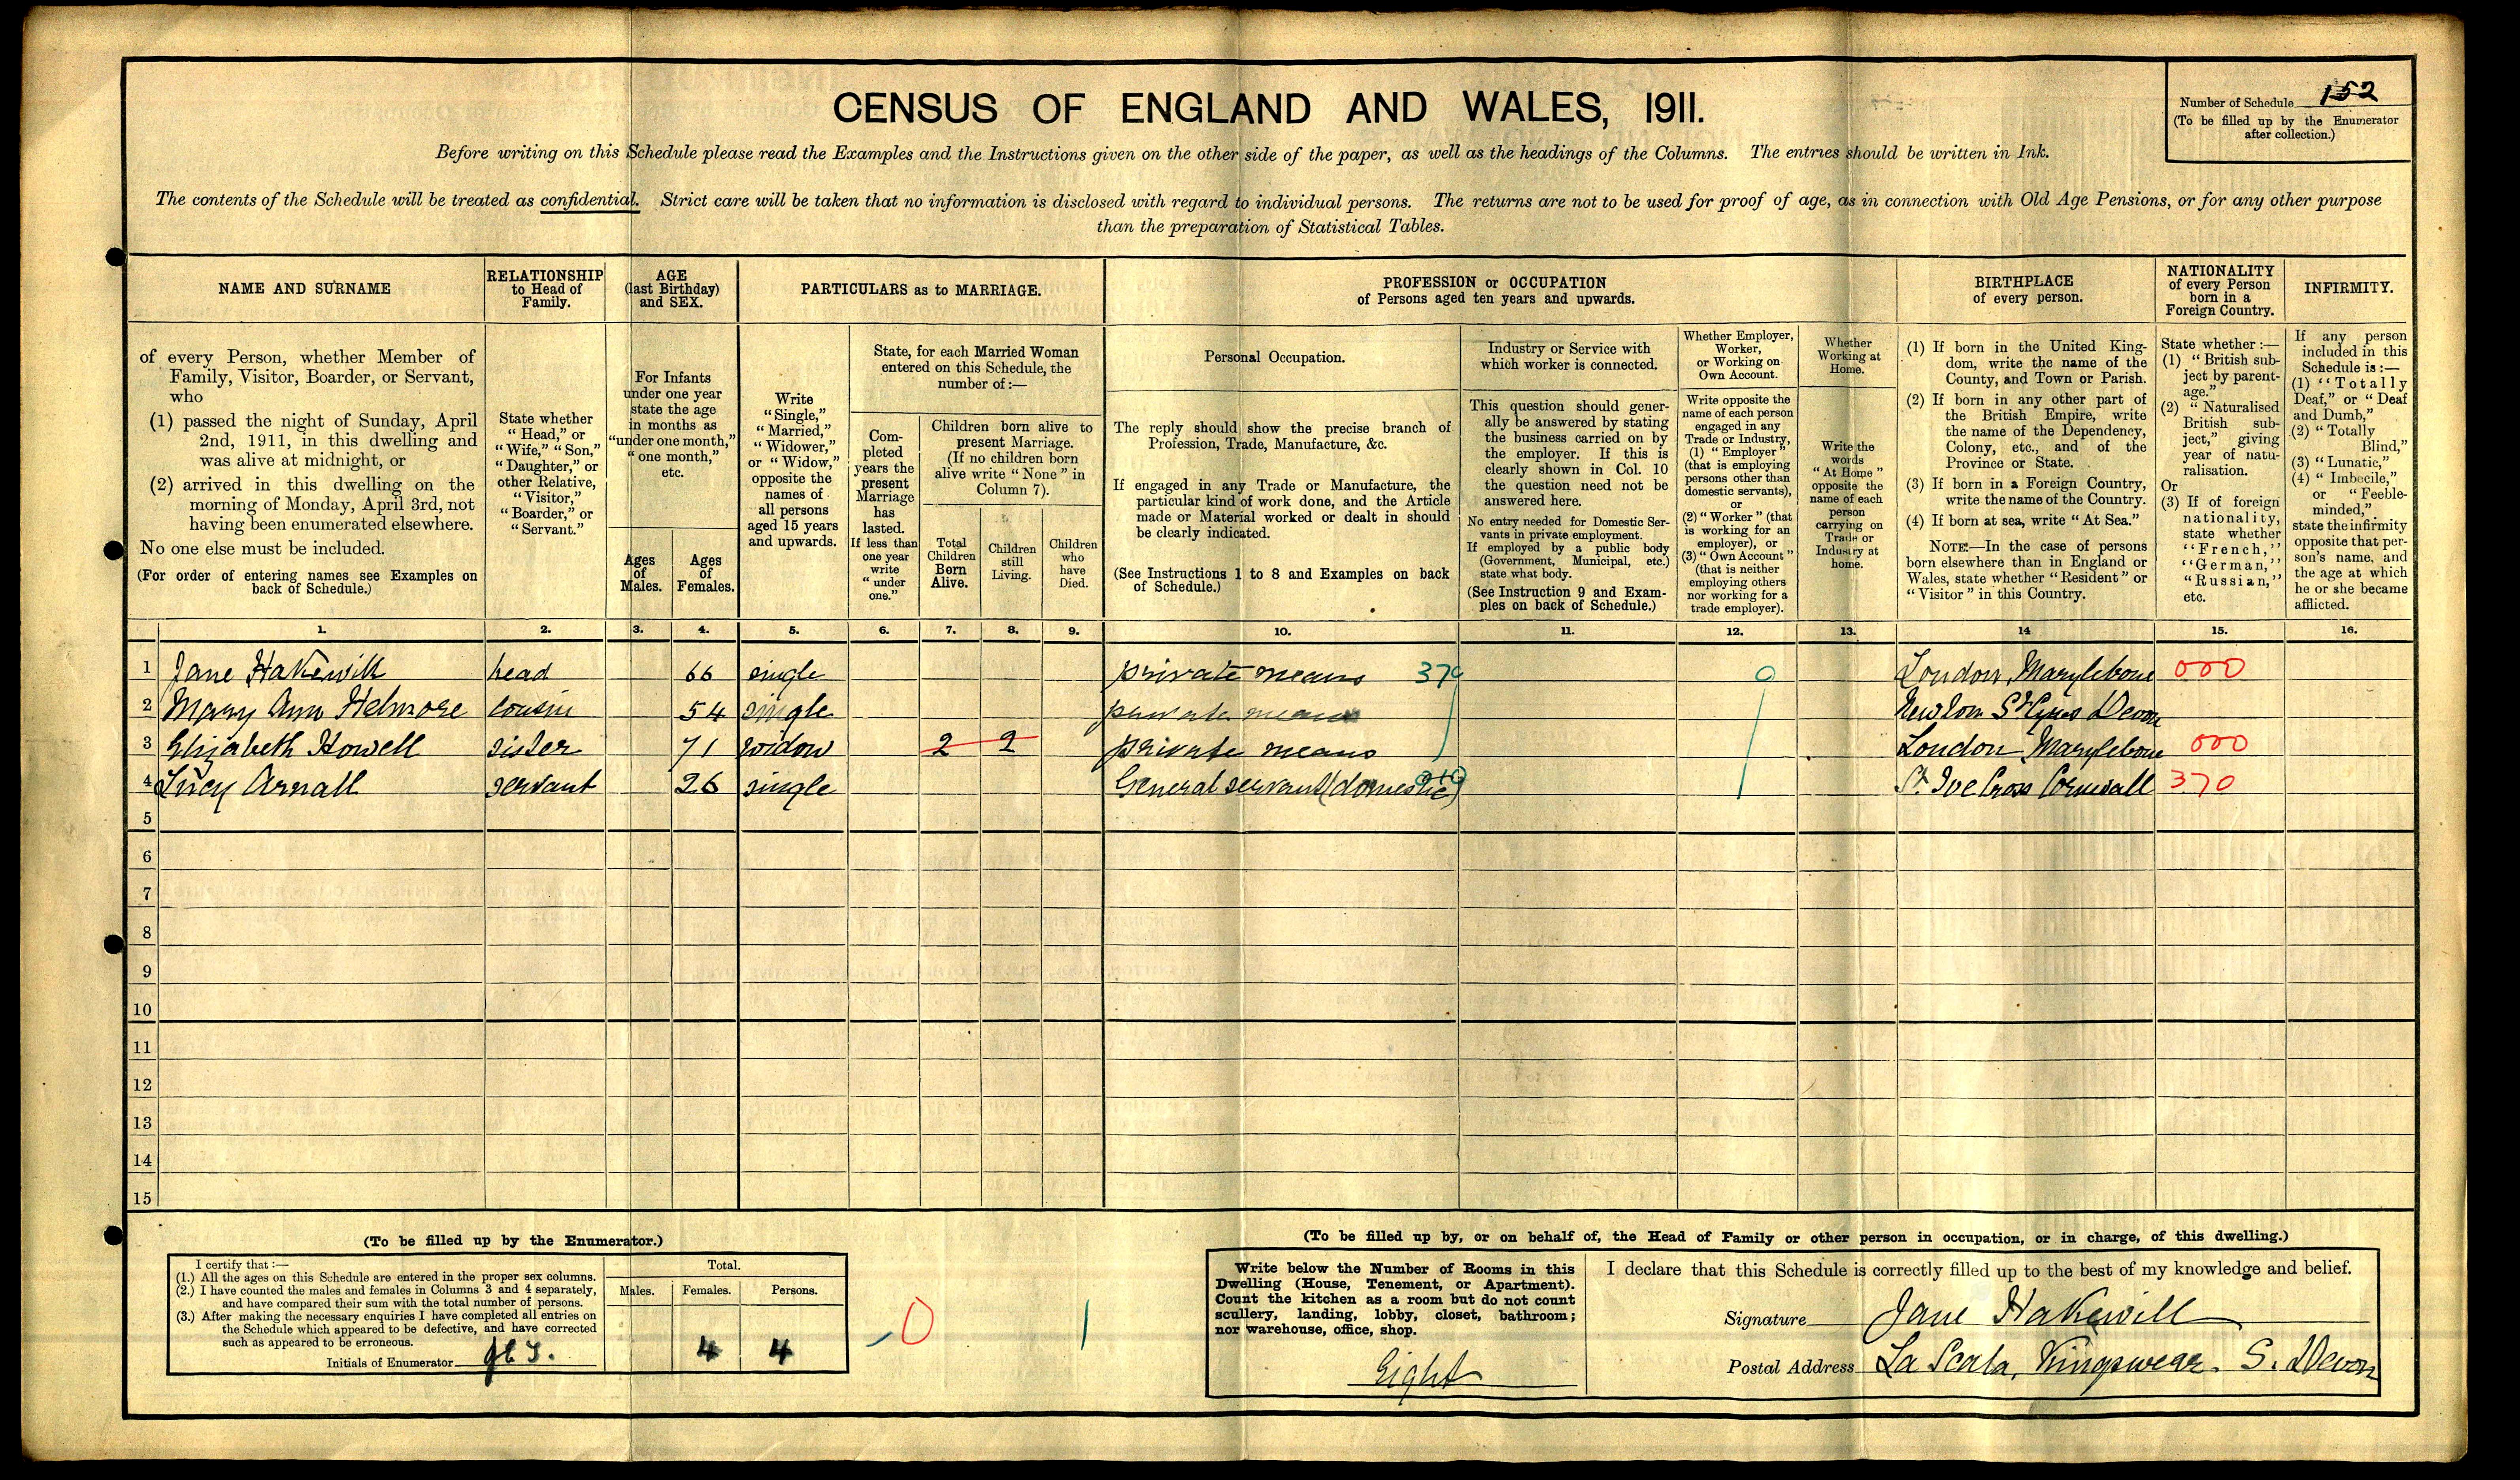 CENSUS OF ENGLAND AND WALES, 1911.
Number of Schedule 152
(To be filled up by the Enumerator
after collection.)
Before writing on this Schedule please read the Examples and the Instructions given on the other side of the paper, as well as the headings of the Columns. The entries should be written in Ink.
The contents of the Schedule will be treated as confidential. Strict care will be taken that no information is disclosed with regard to individual persons. The returns are not to be used for proof of age, as in connection with Old Age Pensions, or for any other purpose
than the preparation of Statistical Tables.
NAME AND SURNAME
RELATIONSHIP
to Head of
Family.
AGE
(last Birthday)
and SEX.
PARTICULARS as to MARRIAGE.
PROFESSION or OCCUPATION
of Persons aged ten years and upwards.
BIRTHPLACE
of every person.
NATIONALITY
of every Person
born in a
Foreign Country.
INFIRMITY.
of every Person, whether Member of
Family, Visitor, Boarder, or Servant,
who
(1) passed the night of Sunday, April
2nd, 1911, in this dwelling and
was alive at midnight, or
(2) arrived in this dwelling on the
morning of Monday, April 3rd, not
having been enumerated elsewhere.
No one else must be included.
(For order of entering names see Examples on
back of Schedule.)
State whether
"Head," or
"Wife," "Son,"
"Daughter," or
other Relative,
"Visitor,"
"Boarder," or
"Servant."
For Infants
under one year
state the age
in months as
"under one month,"
"one month,"
etc.
Ages
of
Males.
Ages
of
Females.
Write
"Single,"
"Married,"
"Widower,"
or "Widow,"
opposite the
names of
all persons
aged 15 years
and upwards.
State, for each Married Woman
entered on this Schedule, the
number of:—
Com-
pleted
years the
present
Marriage
has
lasted.
If less than
one year
write
"under
one."
Children born alive to
present Marriage.
(If no children born
alive write "None" in
Column 7).
Total
Children
Born
Alive.
Children
still
Living.
Children
who
have
Died.
Personal Occupation.
The reply should show the precise branch of
Profession, Trade, Manufacture, &c.
If engaged in any Trade or Manufacture, the
particular kind of work done, and the Article
made or Material worked or dealt in should
be clearly indicated.
(See Instructions 1 to 8 and Examples on back
of Schedule.)
Industry or Service with
which worker is connected.
This question should gener-
ally be answered by stating
the business carried on by
the employer. If this is
clearly shown in Col. 10
the question need not be
answered here.
No entry needed for Domestic Ser-
vants in private employment.
If employed by a public body
(Government, Municipal, etc.)
state what body.
(See Instruction 9 and Exam-
ples on back of Schedule.)
Whether Employer,
Worker,
or Working on
Own Account.
Write opposite the
name of each person
engaged in any
Trade or Industry,
(1) "Employer"
(that is employing
persons other than
domestic servants),
or
(2) "Worker" (that
is working for an
employer), or
(3) "Own Account"
(that is neither
employing others
nor working for a
trade employer).
Whether
Working at
Home.
Write the
words
"At Home"
opposite the
name of each
person
carrying on
Trade or
Industry at
home.
(1) If born in the United King-
dom, write the name of the
County, and Town or Parish.
(2) If born in any other part of
the British Empire, write
the name of the Dependency,
Colony, etc., and of the
Province or State.
(3) If born in a Foreign Country,
write the name of the Country.
(4) If born at sea, write "At Sea."
NOTE.—In the case of persons
born elsewhere than in England or
Wales, state whether "Resident" or
"Visitor" in this Country.
State whether:—
(1) "British sub-
ject by parent-
age."
(2) "Naturalised
British sub-
ject," giving
year of natu-
ralisation.
Or
(3) If of foreign
nationality,
state whether
"French,"
"German,"
"Russian,"
etc.
If any person
included in this
Schedule is:—
(1) "Totally
Deaf," or "Deaf
and Dumb,"
(2) "Totally
Blind,"
(3) "Lunatic,"
(4) "Imbecile,"
or "Feeble-
minded,"
state the infirmity
opposite that per-
son's name, and
the age at which
he or she became
afflicted.
1. 2. 3. 4. 5. 6. 7. 8. 9. 10. 11. 12. 13. 14 15. 16.
1 Jane Hakewill head 66 single private means 379 0 London, Marylebone 000
2 Mary Ann Helmore cousin 54 single private means Newton St Cyres Devon
3 Elizabeth Howell sister 71 widow 2 2 private means London Marylebone 000
4 Lucy Arnall servant 26 single General servant (domestic) St Ive Cross Cornwall 370
5
6
7
8
9
10
11
12
13
14
15
(To be filled up by the Enumerator.)
I certify that:—
(1.) All the ages on this Schedule are entered in the proper sex columns.
(2.) I have counted the males and females in Columns 3 and 4 separately,
and have compared their sum with the total number of persons.
(3.) After making the necessary enquiries I have completed all entries on
the Schedule which appeared to be defective, and have corrected
such as appeared to be erroneous.
Initials of Enumerator
Total.
Males. Females. Persons.
4 4
0 1
(To be filled up by, or on behalf of, the Head of Family or other person in occupation, or in charge, of this dwelling.)
Write below the Number of Rooms in this
Dwelling (House, Tenement, or Apartment).
Count the kitchen as a room but do not count
scullery, landing, lobby, closet, bathroom;
nor warehouse, office, shop.
Eight
I declare that this Schedule is correctly filled up to the best of my knowledge and belief.
Signature Jane Hakewill
Postal Address La Scala, Kingswear. S. Devon